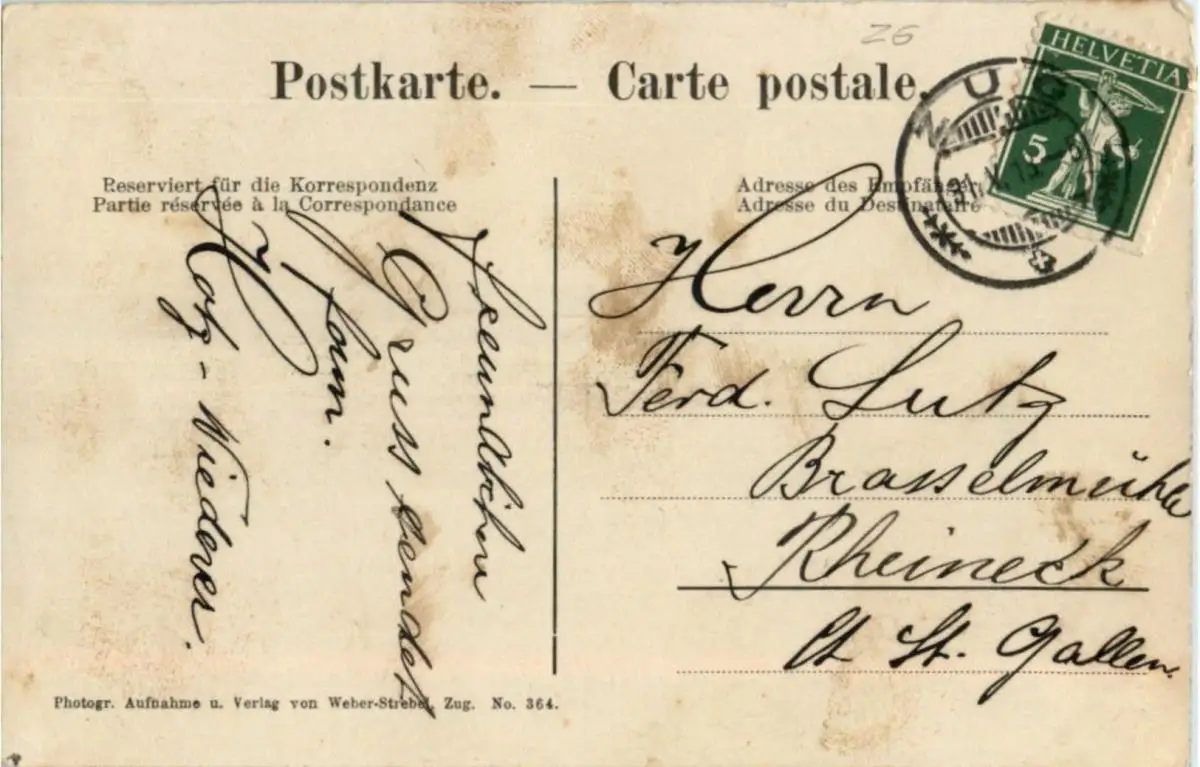 Postkarte. — Carte postale.
Z6
HELVETIA
5
ZUG
Reserviert für die Korrespondenz
Partie réservée à la Correspondance
Adresse des Empfänger
Adresse du Destinataire
Herrn
Ferd. Lutz
Brasselmühle
Rheineck
Ct St. Gallen
Gruss sendet
Fam.
Hotz - Niederer.
Photogr. Aufnahme u. Verlag von Weber-Strebel, Zug. No. 364.